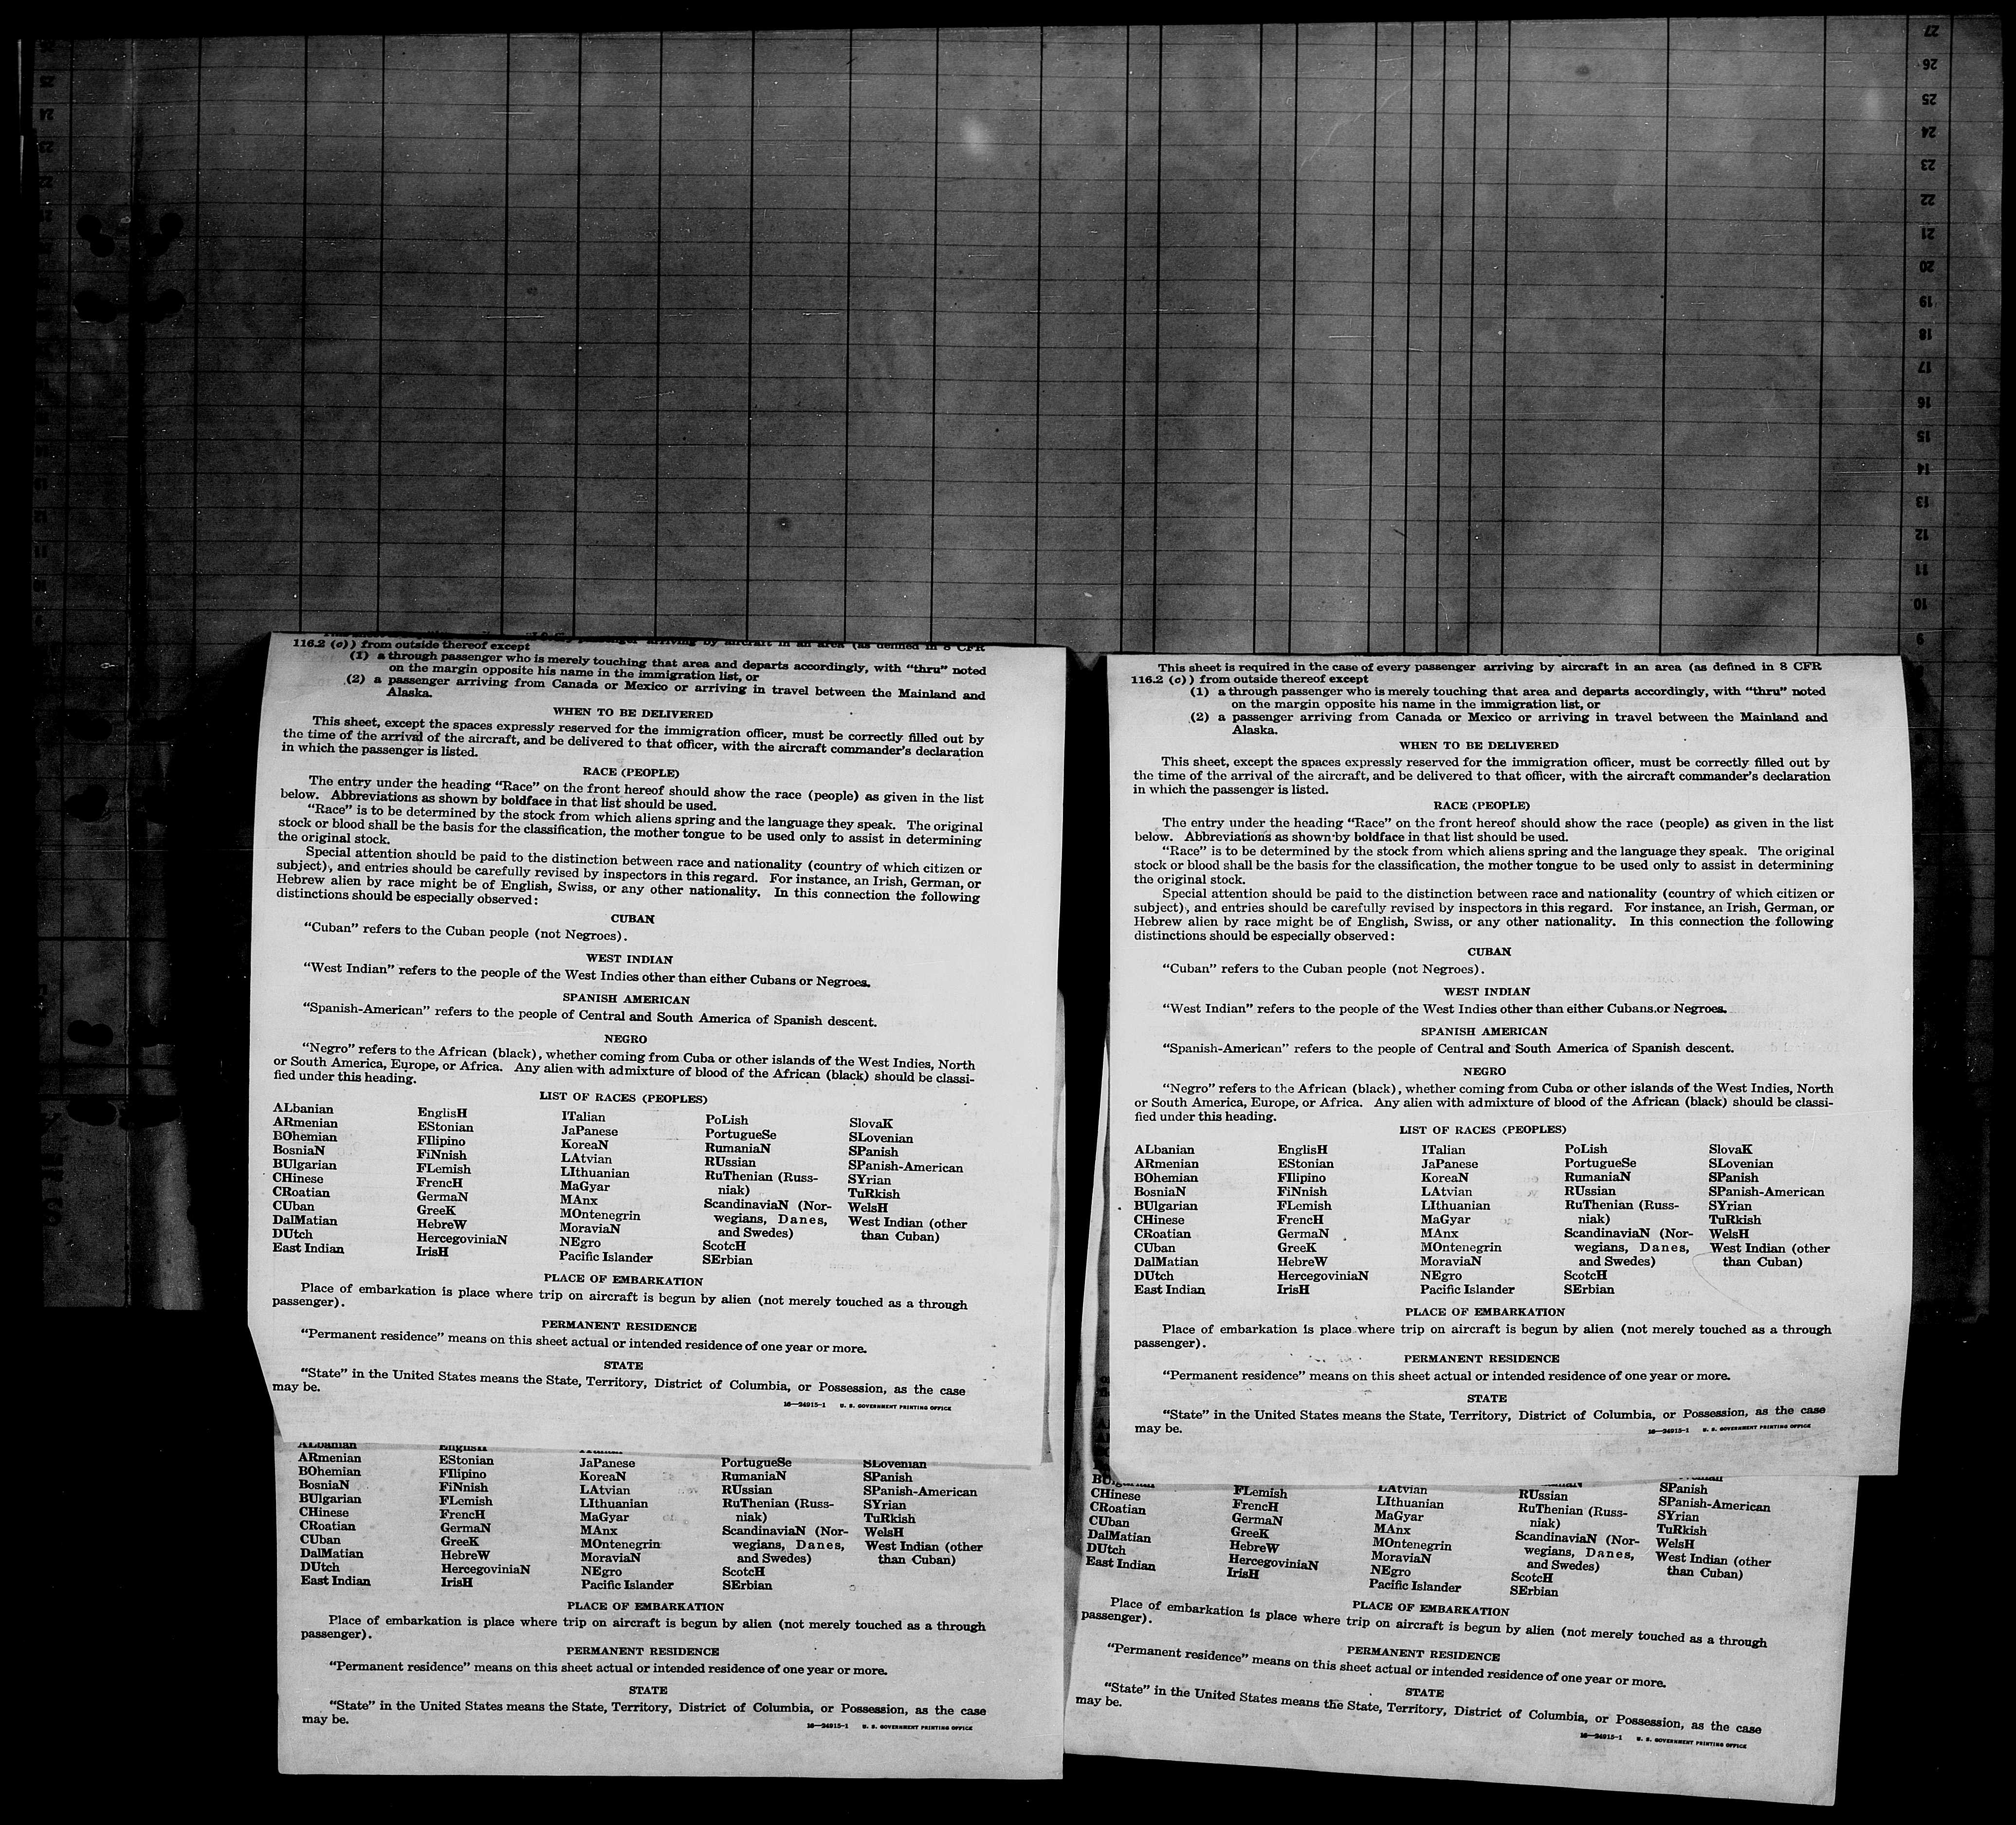 27
26
25
24
23
22
21
20
19
18
17
16
15
14
13
12
11
10
9
116.2 (c)) from outside thereof except
(1) a through passenger who is merely touching that area and departs accordingly, with “thru” noted
on the margin opposite his name in the immigration list, or
(2) a passenger arriving from Canada or Mexico or arriving in travel between the Mainland and
Alaska.
WHEN TO BE DELIVERED
This sheet, except the spaces expressly reserved for the immigration officer, must be correctly filled out by
the time of the arrival of the aircraft, and be delivered to that officer, with the aircraft commander’s declaration
in which the passenger is listed.
RACE (PEOPLE)
The entry under the heading “Race” on the front hereof should show the race (people) as given in the list
below. Abbreviations as shown by boldface in that list should be used.
“Race” is to be determined by the stock from which aliens spring and the language they speak. The original
stock or blood shall be the basis for the classification, the mother tongue to be used only to assist in determining
the original stock.
Special attention should be paid to the distinction between race and nationality (country of which citizen or
subject), and entries should be carefully revised by inspectors in this regard. For instance, an Irish, German, or
Hebrew alien by race might be of English, Swiss, or any other nationality. In this connection the following
distinctions should be especially observed:
CUBAN
“Cuban” refers to the Cuban people (not Negroes).
WEST INDIAN
“West Indian” refers to the people of the West Indies other than either Cubans or Negroes.
SPANISH AMERICAN
“Spanish-American” refers to the people of Central and South America of Spanish descent.
NEGRO
“Negro” refers to the African (black), whether coming from Cuba or other islands of the West Indies, North
or South America, Europe, or Africa. Any alien with admixture of blood of the African (black) should be classi-
fied under this heading.
LIST OF RACES (PEOPLES)
ALbanian
ARmenian
BOhemian
BosniaN
BUlgarian
CHinese
CRoatian
CUban
DalMatian
DUtch
East Indian
EnglisH
EStonian
FIlipino
FiNnish
FLemish
FrencH
GermaN
GreeK
HebreW
HercegoviniaN
IrisH
ITalian
JaPanese
KoreaN
LAtvian
LIthuanian
MaGyar
MAnx
MOntenegrin
MoraviaN
NEgro
Pacific Islander
PoLish
PortugueSe
RumaniaN
RUssian
RuThenian (Russ-
niak)
ScandinaviaN (Nor-
wegians, Danes,
and Swedes)
ScotcH
SErbian
SlovaK
SLovenian
SPanish
SPanish-American
SYrian
TuRkish
WelsH
West Indian (other
than Cuban)
PLACE OF EMBARKATION
Place of embarkation is place where trip on aircraft is begun by alien (not merely touched as a through
passenger).
PERMANENT RESIDENCE
“Permanent residence” means on this sheet actual or intended residence of one year or more.
STATE
“State” in the United States means the State, Territory, District of Columbia, or Possession, as the case
may be.
16—24915-1 U. S. GOVERNMENT PRINTING OFFICE
ALbanian
ARmenian
BOhemian
BosniaN
BUlgarian
CHinese
CRoatian
CUban
DalMatian
DUtch
East Indian
EnglisH
EStonian
FIlipino
FiNnish
FLemish
FrencH
GermaN
GreeK
HebreW
HercegoviniaN
IrisH
JaPanese
KoreaN
LAtvian
LIthuanian
MaGyar
MAnx
MOntenegrin
MoraviaN
NEgro
Pacific Islander
PortugueSe
RumaniaN
RUssian
RuThenian (Russ-
niak)
ScandinaviaN (Nor-
wegians, Danes,
and Swedes)
ScotcH
SErbian
SLovenian
SPanish
SPanish-American
SYrian
TuRkish
WelsH
West Indian (other
than Cuban)
PLACE OF EMBARKATION
Place of embarkation is place where trip on aircraft is begun by alien (not merely touched as a through
passenger).
PERMANENT RESIDENCE
“Permanent residence” means on this sheet actual or intended residence of one year or more.
STATE
“State” in the United States means the State, Territory, District of Columbia, or Possession, as the case
may be.
16—24915-1 U. S. GOVERNMENT PRINTING OFFICE
This sheet is required in the case of every passenger arriving by aircraft in an area (as defined in 8 CFR
116.2 (c)) from outside thereof except
(1) a through passenger who is merely touching that area and departs accordingly, with “thru” noted
on the margin opposite his name in the immigration list, or
(2) a passenger arriving from Canada or Mexico or arriving in travel between the Mainland and
Alaska.
WHEN TO BE DELIVERED
This sheet, except the spaces expressly reserved for the immigration officer, must be correctly filled out by
the time of the arrival of the aircraft, and be delivered to that officer, with the aircraft commander’s declaration
in which the passenger is listed.
RACE (PEOPLE)
The entry under the heading “Race” on the front hereof should show the race (people) as given in the list
below. Abbreviations as shown by boldface in that list should be used.
“Race” is to be determined by the stock from which aliens spring and the language they speak. The original
stock or blood shall be the basis for the classification, the mother tongue to be used only to assist in determining
the original stock.
Special attention should be paid to the distinction between race and nationality (country of which citizen or
subject), and entries should be carefully revised by inspectors in this regard. For instance, an Irish, German, or
Hebrew alien by race might be of English, Swiss, or any other nationality. In this connection the following
distinctions should be especially observed:
CUBAN
“Cuban” refers to the Cuban people (not Negroes).
WEST INDIAN
“West Indian” refers to the people of the West Indies other than either Cubans or Negroes.
SPANISH AMERICAN
“Spanish-American” refers to the people of Central and South America of Spanish descent.
NEGRO
“Negro” refers to the African (black), whether coming from Cuba or other islands of the West Indies, North
or South America, Europe, or Africa. Any alien with admixture of blood of the African (black) should be classi-
fied under this heading.
LIST OF RACES (PEOPLES)
ALbanian
ARmenian
BOhemian
BosniaN
BUlgarian
CHinese
CRoatian
CUban
DalMatian
DUtch
East Indian
EnglisH
EStonian
FIlipino
FiNnish
FLemish
FrencH
GermaN
GreeK
HebreW
HercegoviniaN
IrisH
ITalian
JaPanese
KoreaN
LAtvian
LIthuanian
MaGyar
MAnx
MOntenegrin
MoraviaN
NEgro
Pacific Islander
PoLish
PortugueSe
RumaniaN
RUssian
RuThenian (Russ-
niak)
ScandinaviaN (Nor-
wegians, Danes,
and Swedes)
ScotcH
SErbian
SlovaK
SLovenian
SPanish
SPanish-American
SYrian
TuRkish
WelsH
West Indian (other
than Cuban)
PLACE OF EMBARKATION
Place of embarkation is place where trip on aircraft is begun by alien (not merely touched as a through
passenger).
PERMANENT RESIDENCE
“Permanent residence” means on this sheet actual or intended residence of one year or more.
STATE
“State” in the United States means the State, Territory, District of Columbia, or Possession, as the case
may be.
16—24915-1 U. S. GOVERNMENT PRINTING OFFICE
CHinese
CRoatian
CUban
DalMatian
DUtch
East Indian
FLemish
FrencH
GermaN
GreeK
HebreW
HercegoviniaN
IrisH
LAtvian
LIthuanian
MaGyar
MAnx
MOntenegrin
MoraviaN
NEgro
Pacific Islander
RUssian
RuThenian (Russ-
niak)
ScandinaviaN (Nor-
wegians, Danes,
and Swedes)
ScotcH
SErbian
SPanish
SPanish-American
SYrian
TuRkish
WelsH
West Indian (other
than Cuban)
PLACE OF EMBARKATION
Place of embarkation is place where trip on aircraft is begun by alien (not merely touched as a through
passenger).
PERMANENT RESIDENCE
“Permanent residence” means on this sheet actual or intended residence of one year or more.
STATE
“State” in the United States means the State, Territory, District of Columbia, or Possession, as the case
may be.
16—24915-1 U. S. GOVERNMENT PRINTING OFFICE